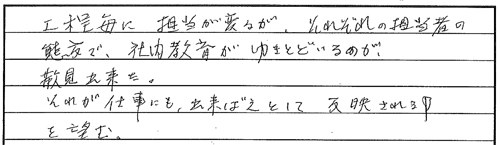 工程毎に 担当が変るが、それぞれの担当者の
態度で、社内教育がゆきとどいるのが、
散見出来た。
それが仕事にも、出来ばえとして 反映される
を望む。